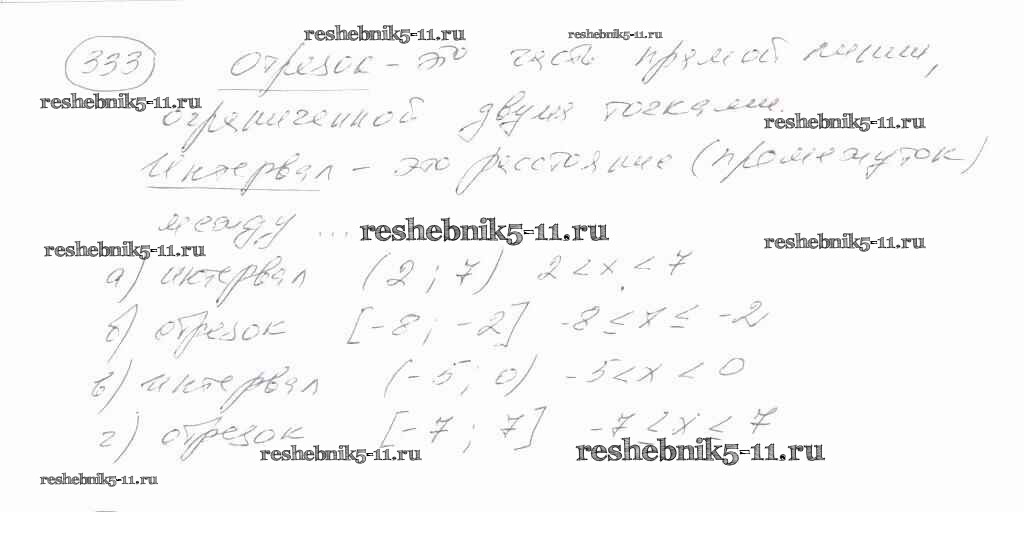 reshebnik5-11.ru reshebnik5-11.ru
333 Отрезок - это часть прямой линии,
reshebnik5-11.ru
ограниченной двумя точками.
reshebnik5-11.ru
Интервал - это расстояние (промежуток)
между ...
reshebnik5-11.ru
reshebnik5-11.ru
reshebnik5-11.ru
а) интервал (2 ; 7) 2 < x < 7
б) отрезок [-8 ; -2] -8 ≤ x ≤ -2
в) интервал (-5 ; 0) -5 < x < 0
г) отрезок [-7 ; 7] -7 ≤ x ≤ 7
reshebnik5-11.ru
reshebnik5-11.ru
reshebnik5-11.ru